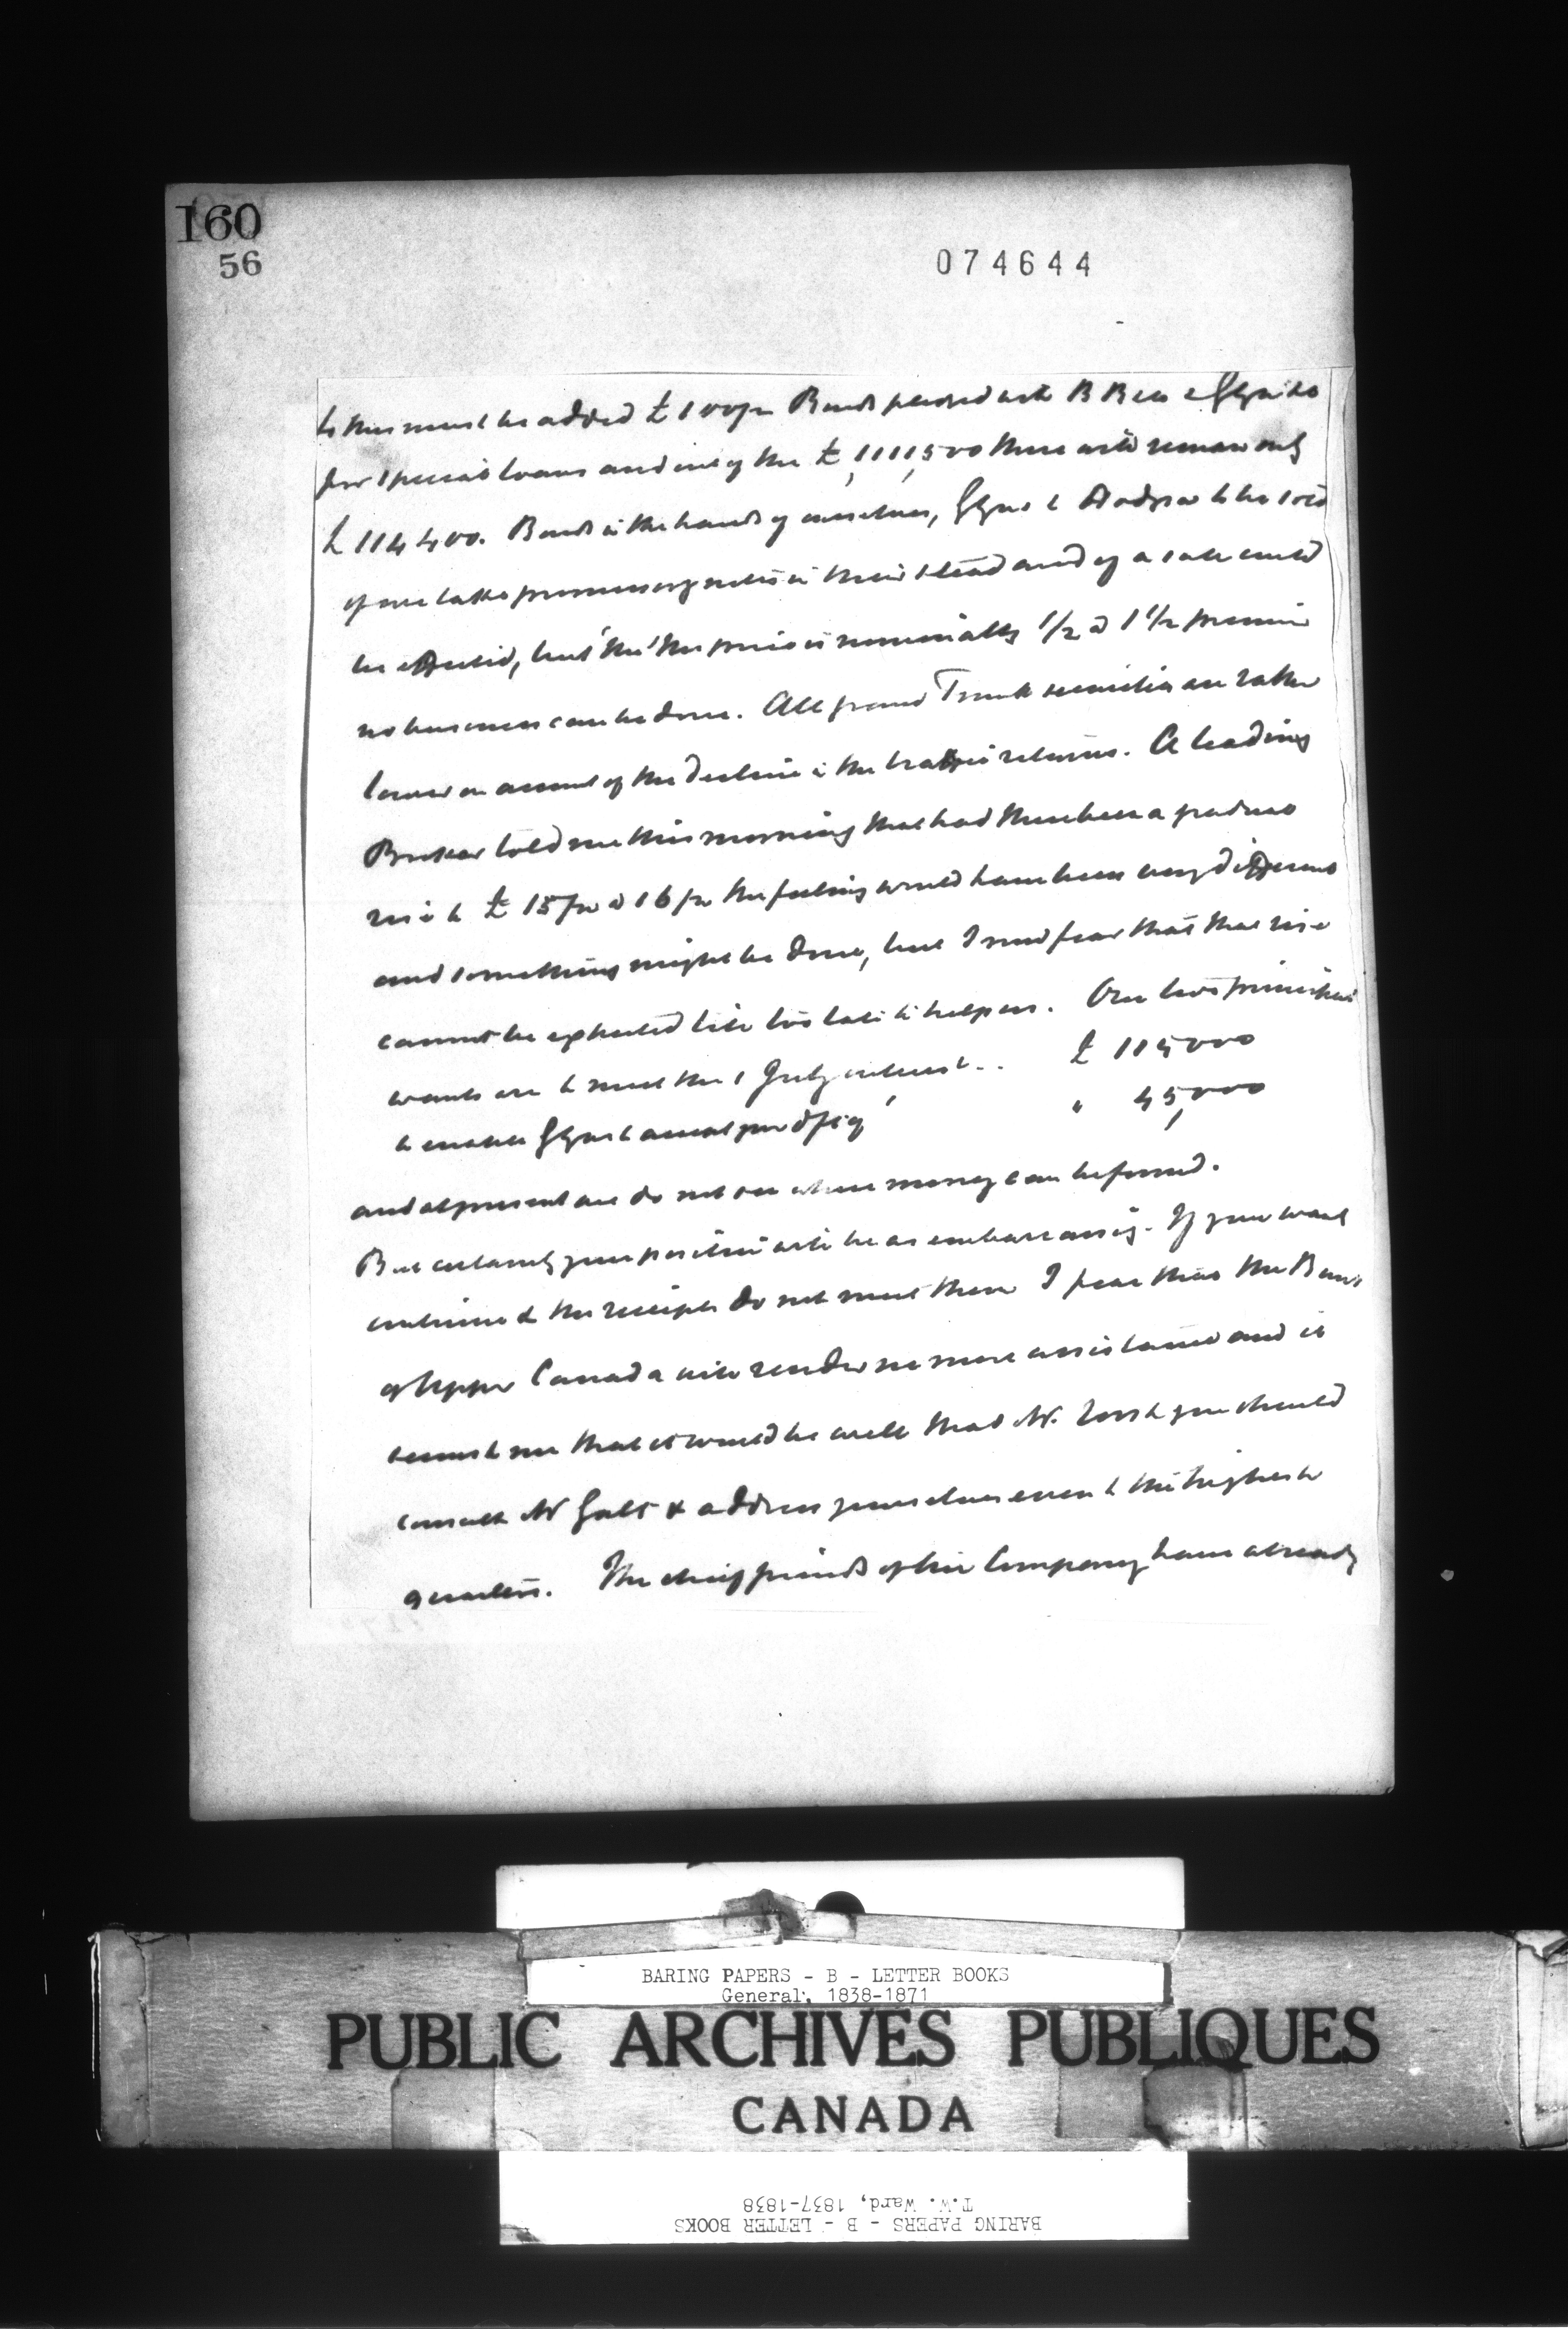 160
56
074644
to this must be added £100/m Bonds pledged with B B & Co & Glyn & Co
for special loans and out of the £1,111,500 there will remain only
£114400. Bonds in the hands of ourselves, Glyns & Hodgson to be sold
if we take promissory notes in their stead and if a sale could
be effected, but tho' the price is nominally 1/2 @ 1 1/2 premium
no business can be done. All grand Trunk securities are rather
lower on account of the decline in the traffic returns. A leading
Broker told me this morning that had there been a gradual
rise to £15/m @ 16/m the feeling would have been very different
and something might be done, but I now fear that that rise
cannot be expected till too late to help us. Our two principal
wants are to meet the 1 July interest .. £ 115000
to enable Glyns to accept your dfts of " 45,000
and at present we do not see where money can be found.
But certainly your position will be as embarrassing. If your wants
continue & the receipts do not meet them I fear that the Bank
of Upper Canada will render no more assistance and it
seems to me that it would be well that Mr. Ross & you should
consult Mr Galt & address yourselves even to the highest
quarters. The chief friends of the Company have already
BARING PAPERS - B - LETTER BOOKS
General, 1838-1871
PUBLIC ARCHIVES PUBLIQUES
CANADA
T.W. Ward, 1837-1838
BARING PAPERS - B - LETTER BOOKS